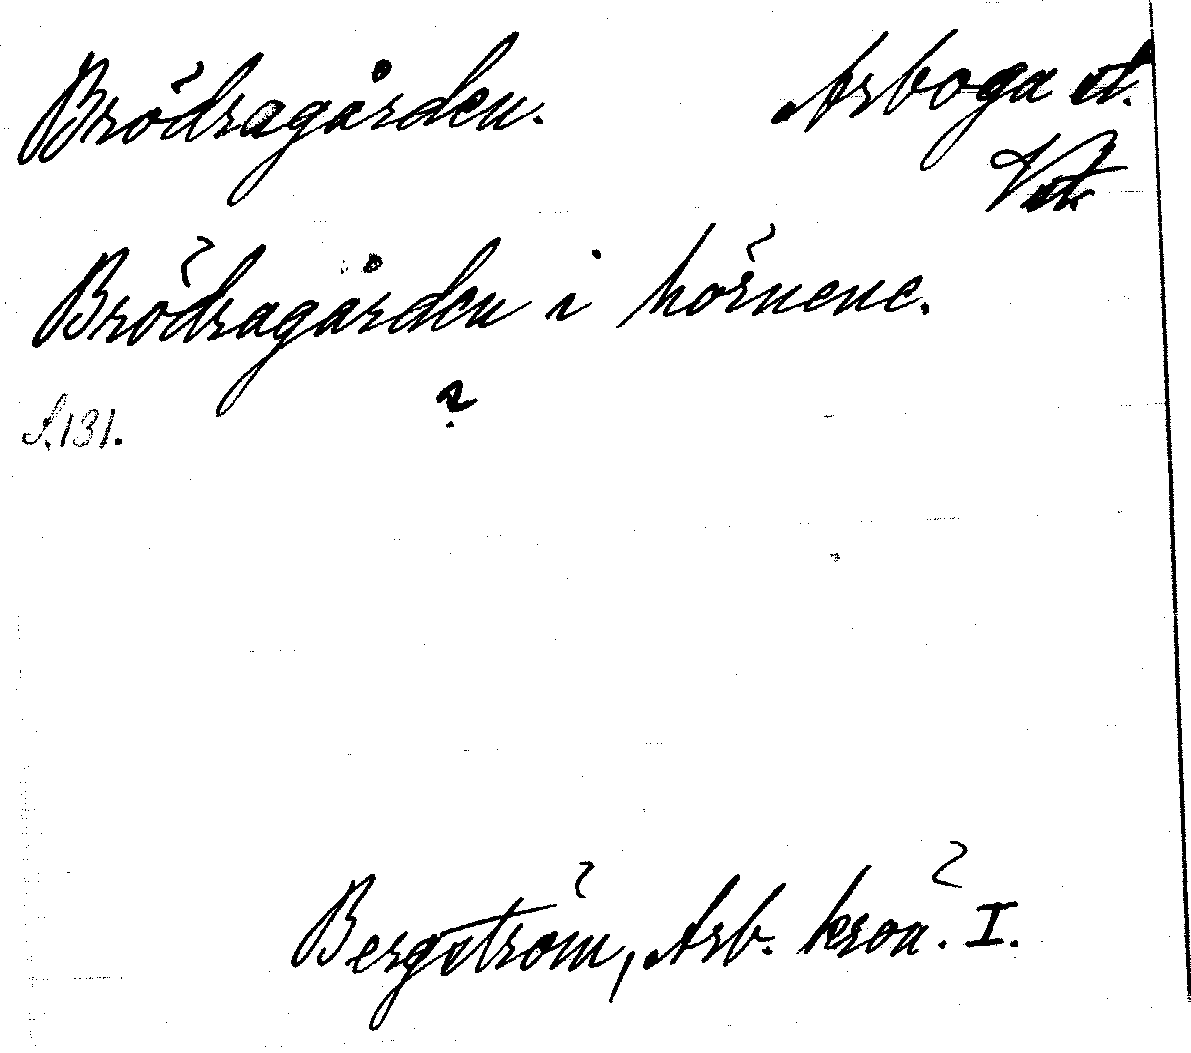 Brödragården. Arboga st.
Vstm
Brödragården i hörnene.
?
S. 131.
Bergström, Arb. krön. I.